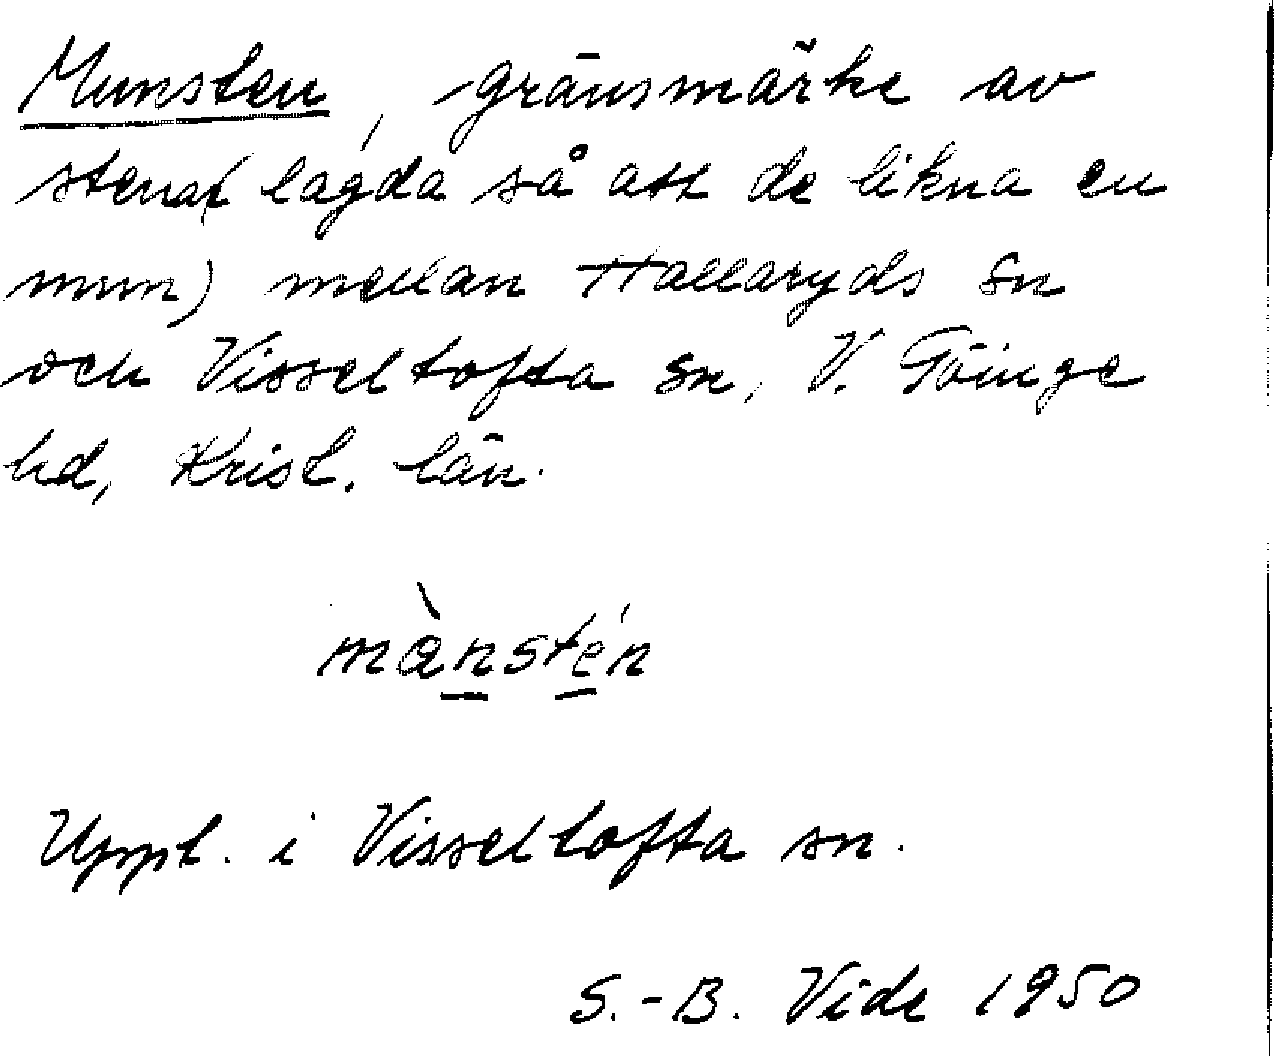 Munsten, gränsmärke av
stenar (lagda så att de likna en
mun) mellan Hallaryds sn
och Visseltofta sn, V. Göinge
hd, Krist. län.
mànstén
Uppt. i Visseltofta sn.
S.-B. Vide 1950